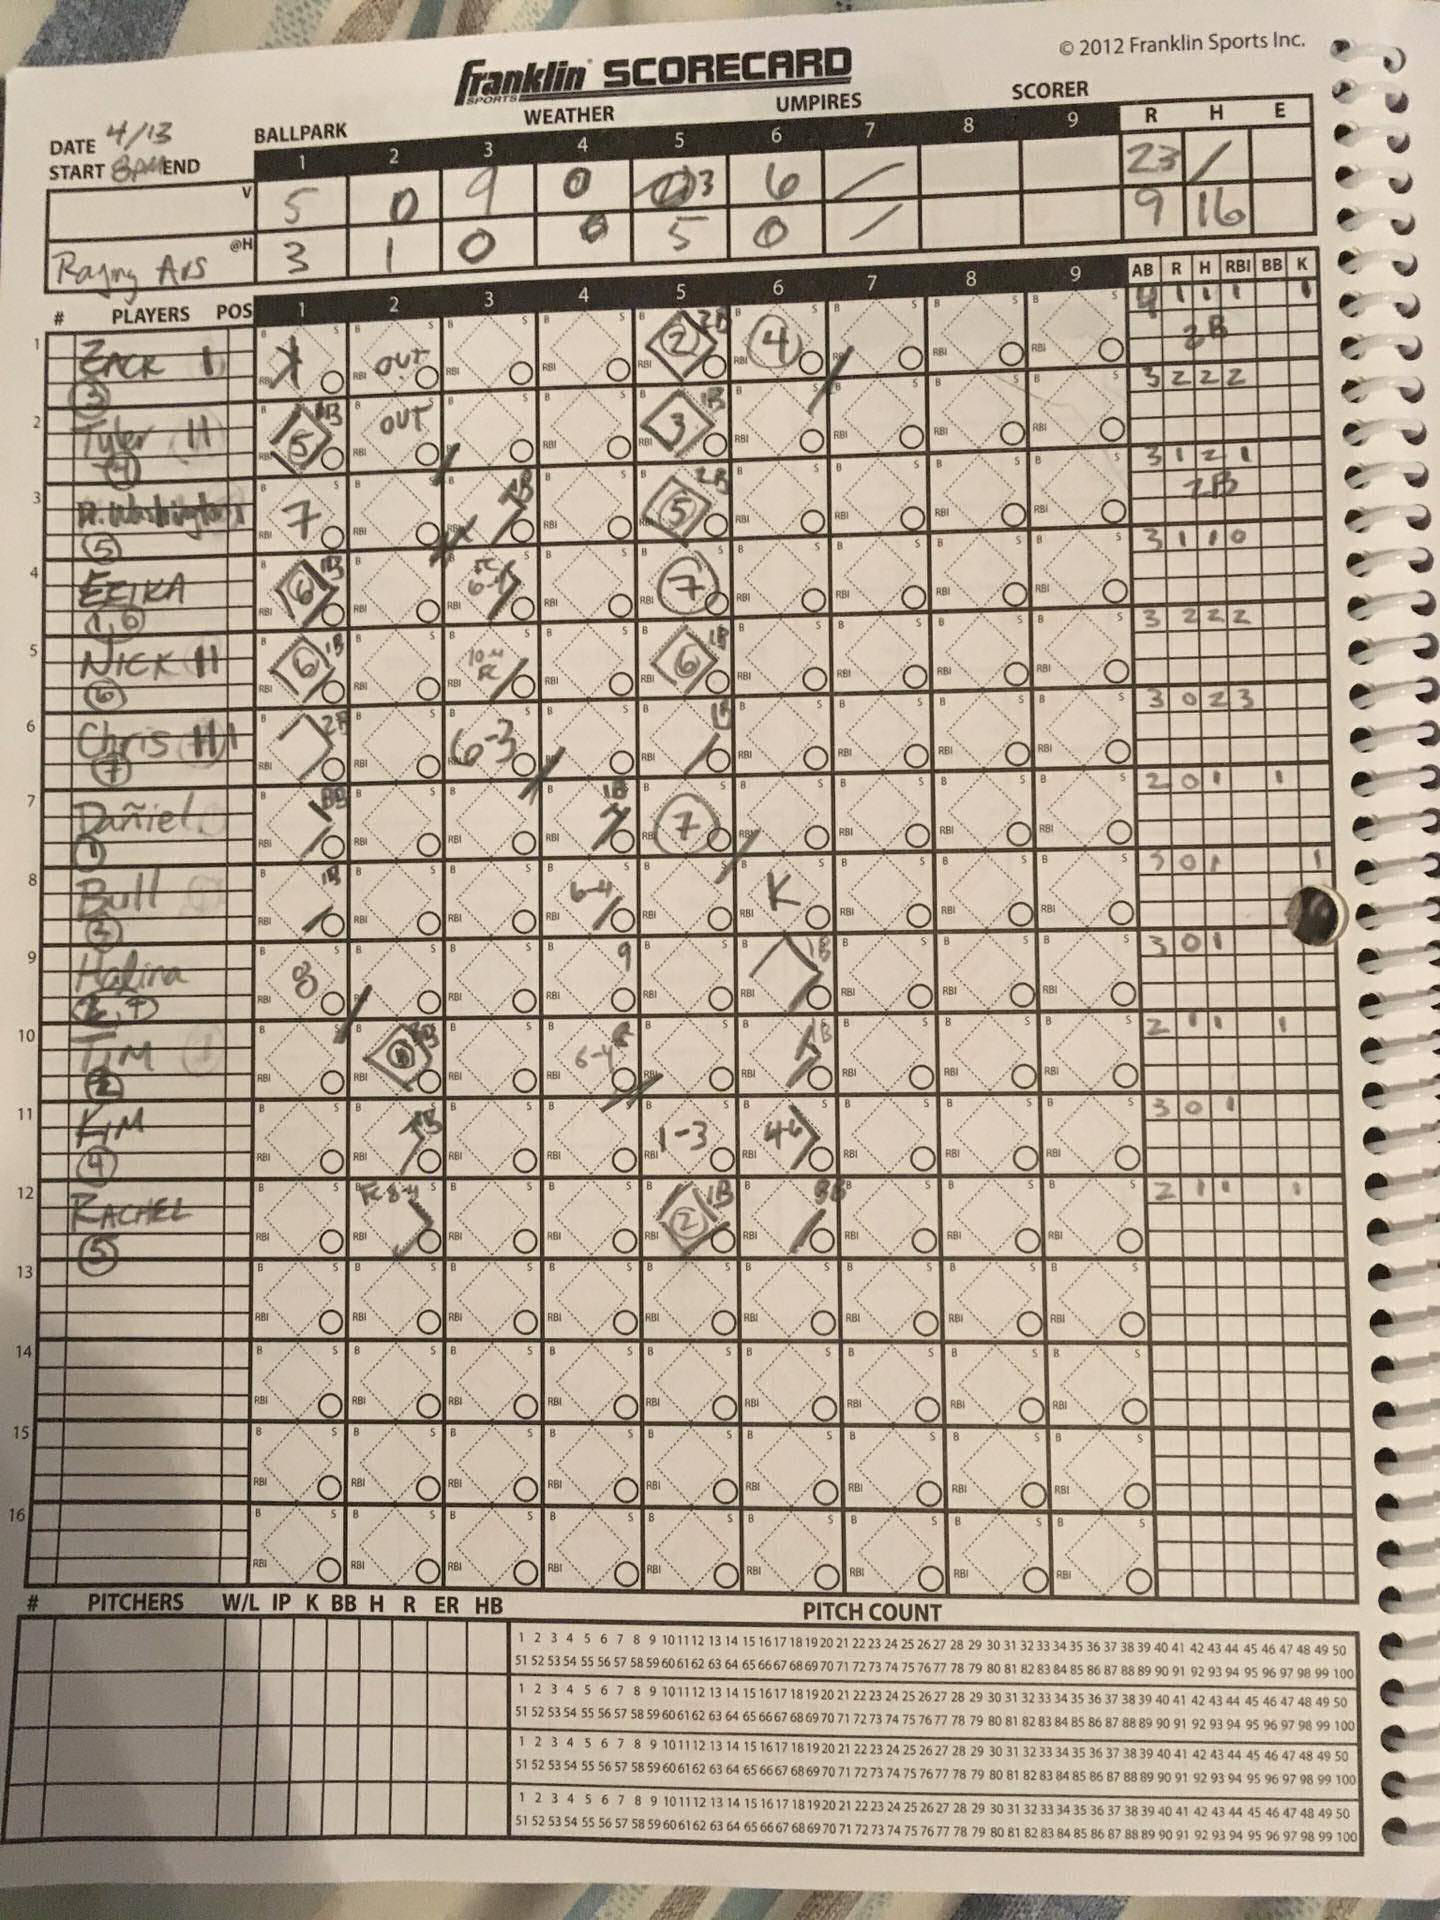 © 2012 Franklin Sports Inc.
Franklin SPORTS SCORECARD
DATE 4/13 BALLPARK WEATHER UMPIRES SCORER
START 8AM END 1 2 3 4 5 6 7 8 9 R H E
V 5 0 9 0 3 6 / 23 /
Raging A's @H 3 1 0 0 5 0 / 9 16
# PLAYERS POS 1 2 3 4 5 6 7 8 9 AB R H RBI BB K
1 ZACK OUT 2 2B 4 4 1 1 1 1
3 2B
2 Tyler 5 1B OUT 3 1B 3 2 2 2
4
3 7 1B 5 2B 3 1 2 1
5 2B
4 ERIKA 6 1B FC 6-4 7 3 1 1 0
1, 6
5 NICK 6 1B 10-4 FC 6 1B 3 2 2 2
6
6 Chris 2B 6-3 1B 3 0 2 3
7
7 Dañiel BB 1B 7 2 0 1 1
1
8 Bull 1B 6-4 K 3 0 1 1
9 Halina 8 9 1B 3 0 1
10 TIM BB 6-4 1B 2 1 1 1
2
11 KIM 1B 1-3 4-6 3 0 1
4
12 RACHEL FC 8-4 2 1B BB 2 1 1 1
5
13
14
15
16
# PITCHERS W/L IP K BB H R ER HB PITCH COUNT
1 2 3 4 5 6 7 8 9 10 11 12 13 14 15 16 17 18 19 20 21 22 23 24 25 26 27 28 29 30 31 32 33 34 35 36 37 38 39 40 41 42 43 44 45 46 47 48 49 50
51 52 53 54 55 56 57 58 59 60 61 62 63 64 65 66 67 68 69 70 71 72 73 74 75 76 77 78 79 80 81 82 83 84 85 86 87 88 89 90 91 92 93 94 95 96 97 98 99 100
1 2 3 4 5 6 7 8 9 10 11 12 13 14 15 16 17 18 19 20 21 22 23 24 25 26 27 28 29 30 31 32 33 34 35 36 37 38 39 40 41 42 43 44 45 46 47 48 49 50
51 52 53 54 55 56 57 58 59 60 61 62 63 64 65 66 67 68 69 70 71 72 73 74 75 76 77 78 79 80 81 82 83 84 85 86 87 88 89 90 91 92 93 94 95 96 97 98 99 100
1 2 3 4 5 6 7 8 9 10 11 12 13 14 15 16 17 18 19 20 21 22 23 24 25 26 27 28 29 30 31 32 33 34 35 36 37 38 39 40 41 42 43 44 45 46 47 48 49 50
51 52 53 54 55 56 57 58 59 60 61 62 63 64 65 66 67 68 69 70 71 72 73 74 75 76 77 78 79 80 81 82 83 84 85 86 87 88 89 90 91 92 93 94 95 96 97 98 99 100
1 2 3 4 5 6 7 8 9 10 11 12 13 14 15 16 17 18 19 20 21 22 23 24 25 26 27 28 29 30 31 32 33 34 35 36 37 38 39 40 41 42 43 44 45 46 47 48 49 50
51 52 53 54 55 56 57 58 59 60 61 62 63 64 65 66 67 68 69 70 71 72 73 74 75 76 77 78 79 80 81 82 83 84 85 86 87 88 89 90 91 92 93 94 95 96 97 98 99 100